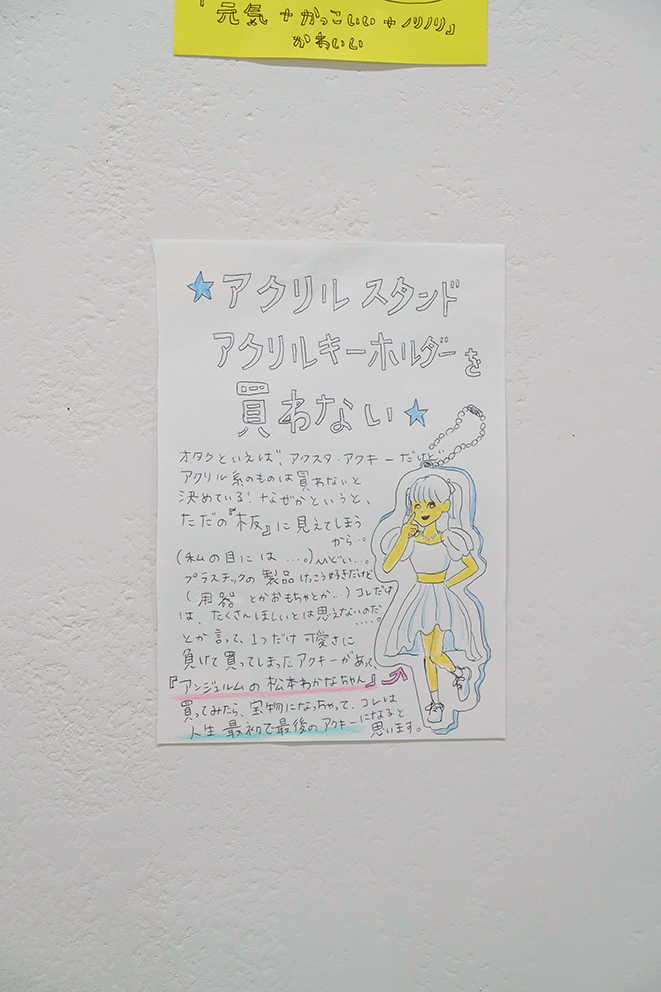 『元気 + かっこいい + ノリノリ』
かわいい
★アクリルスタンド
アクリルキーホルダーを
買わない★
オタクといえば、アクスタ・アクキーだけど
アクリル系のものは買わないと
決めている！なぜかというと、
ただの『板』に見えてしまう
から…。
(私の目には….)ひどい…。
プラスチックの製品けっこう好きだけど
(用器とかおもちゃとか…)コレだけ
は、たくさんほしいとは思えないのだ
….。
とか言って、1つだけ可愛さに
負けて買ってしまったアクキーがあって、
『アンジュルムの松本わかなちゃん』
買ってみたら、宝物になっちゃって、コレは
人生最初で最後のアクキーになると
思います。